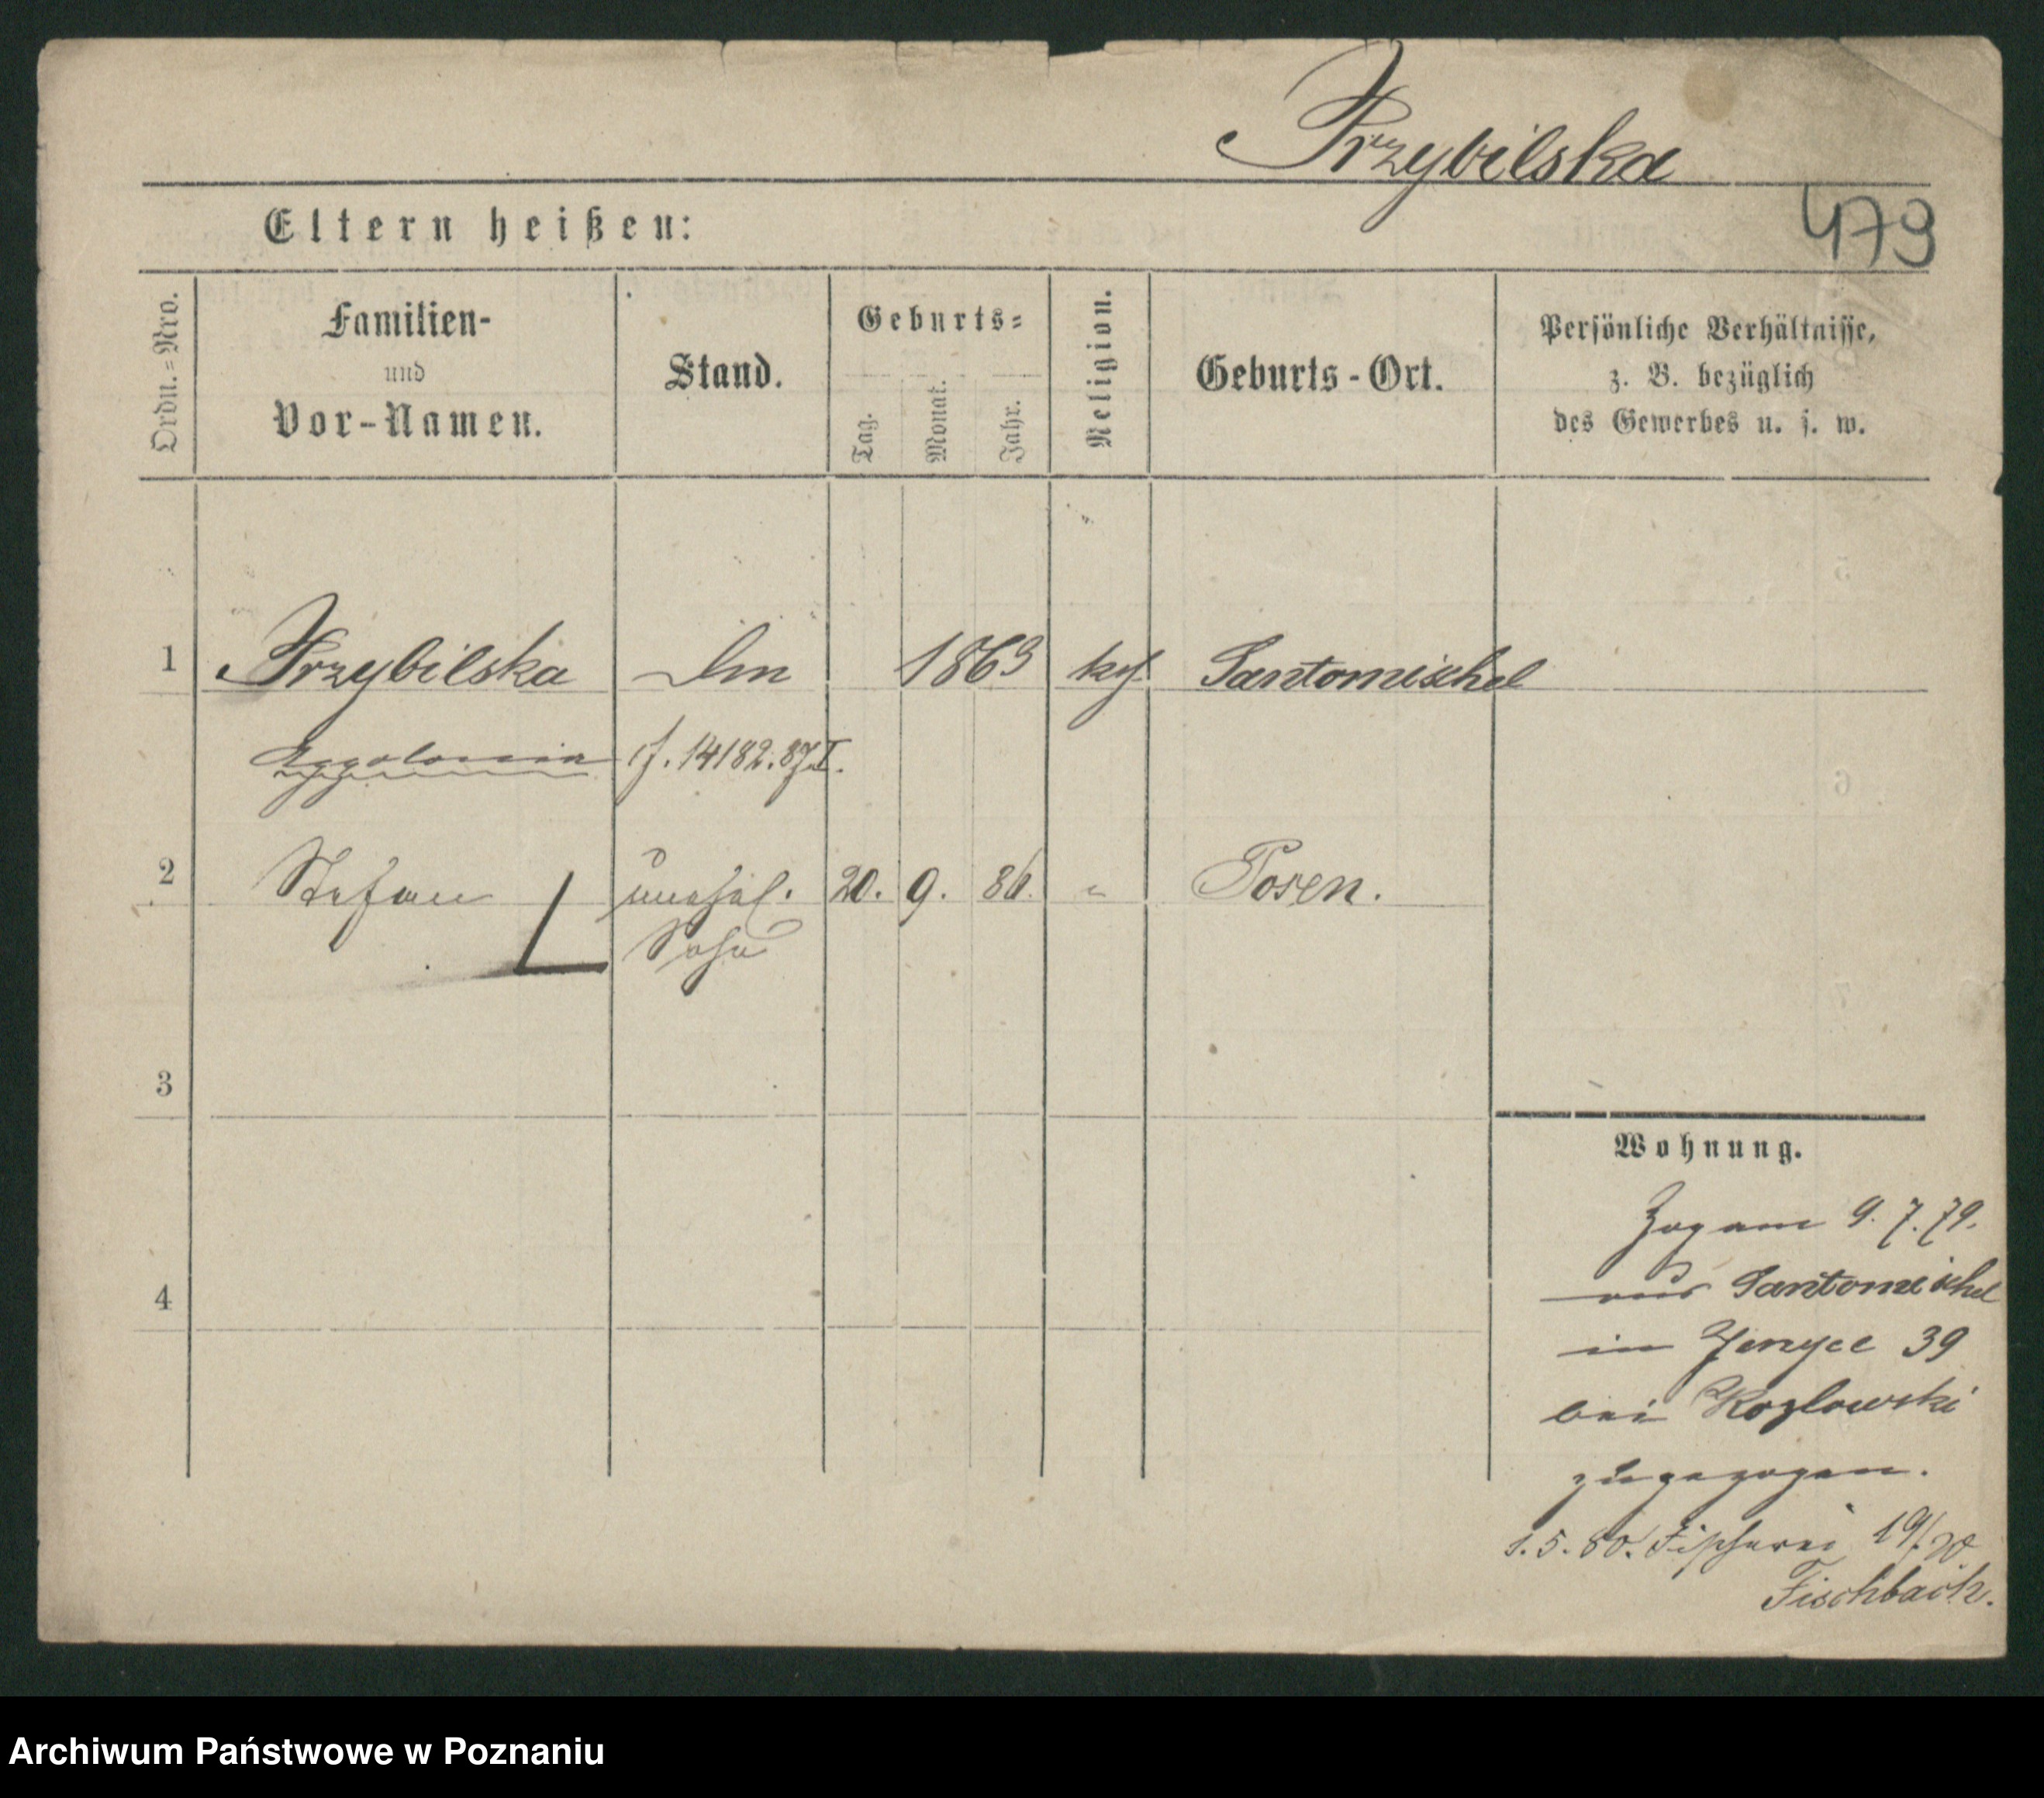 Przybilska
479
Eltern heißen:
Ordn.=Nro.
Familien-
und
Vor-Namen.
Stand.
Geburts=
Tag.
Monat.
Jahr.
Religion.
Geburts-Ort.
Persönliche Verhältnisse,
z. B. bezüglich
des Gewerbes u. s. w.
1 Przybilska 1863 kath Santomischel
J. 14182.87.I.
2 Stefan unehel. 20. 9. 86. " Posen.
Sohn
3
4
Wohnung.
Zog am 9.7.79.
aus Santomischel
in 39
bei Kozlowski
zugezogen.
1.5.80. Fischerei 19/20
Fischbach.
Archiwum Państwowe w Poznaniu